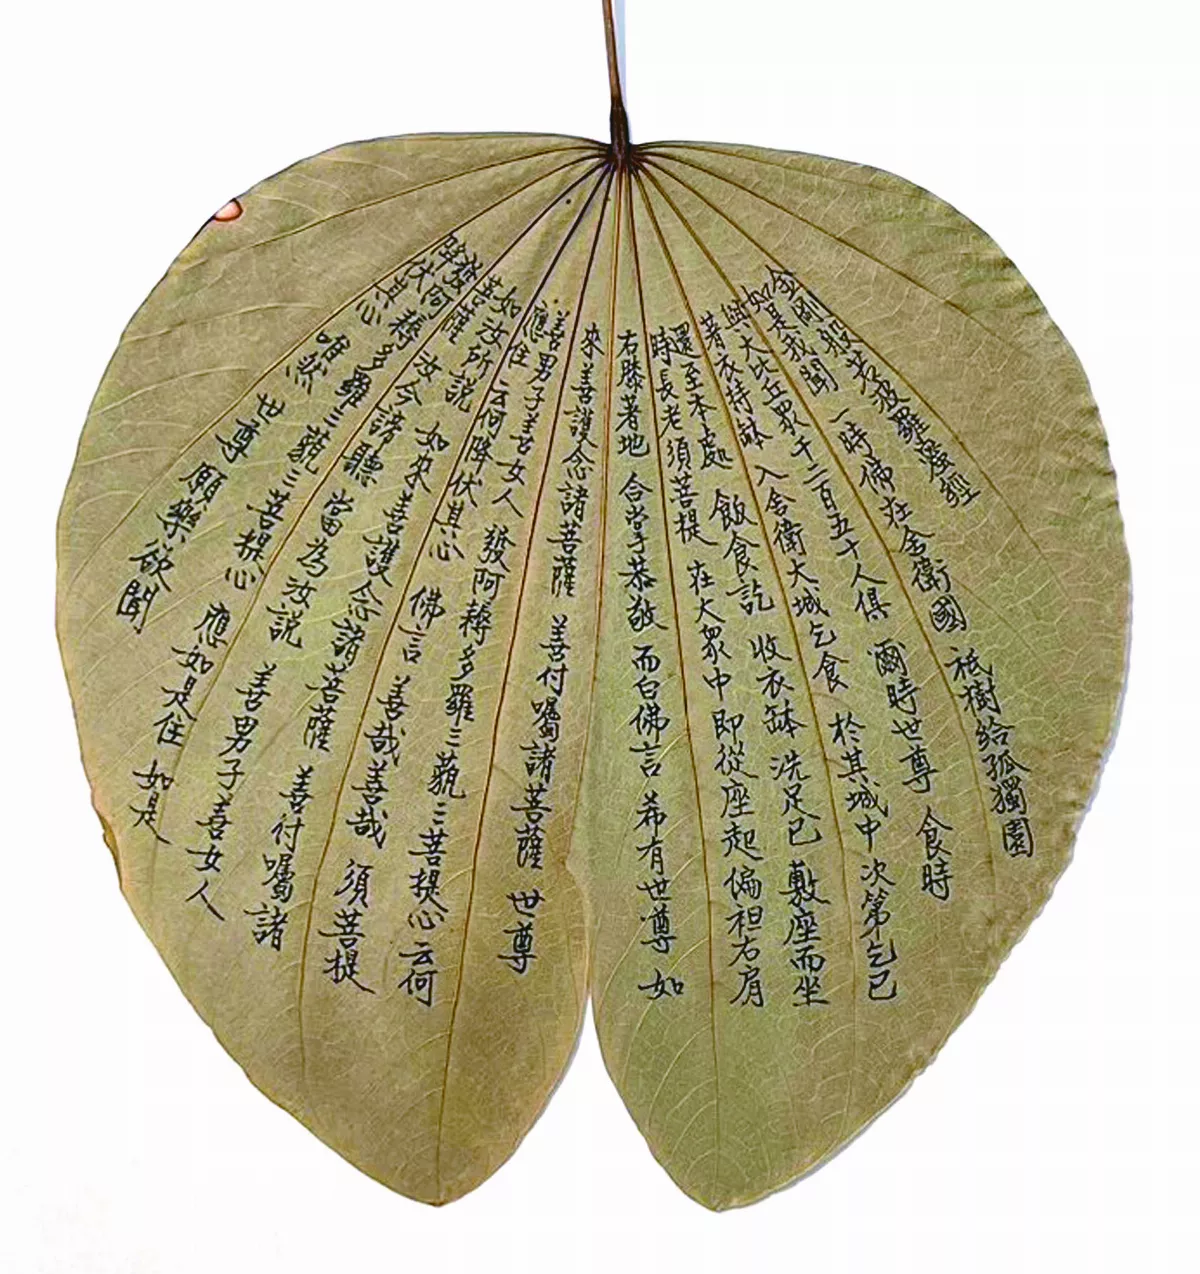 金剛般若波羅蜜經
如是我聞 一時佛在舍衛國 祇樹給孤獨園
與大比丘眾千二百五十人俱 爾時世尊 食時
著衣持缽 入舍衛大城乞食 於其城中次第乞已
還至本處 飯食訖 收衣缽 洗足已 敷座而坐
時長老須菩提 在大眾中即從座起偏袒右肩
右膝著地 合掌恭敬 而白佛言 希有世尊 如
來善護念諸菩薩 善付囑諸菩薩 世尊
善男子善女人 發阿耨多羅三藐三菩提心云何
應住 云何降伏其心 佛言 善哉善哉 須菩提
如汝所說 如來善護念諸菩薩 善付囑諸
菩薩 汝今諦聽 當為汝說 善男子善女人
發阿耨多羅三藐三菩提心 應如是住 如是
降伏其心 唯然 世尊 願樂欲聞